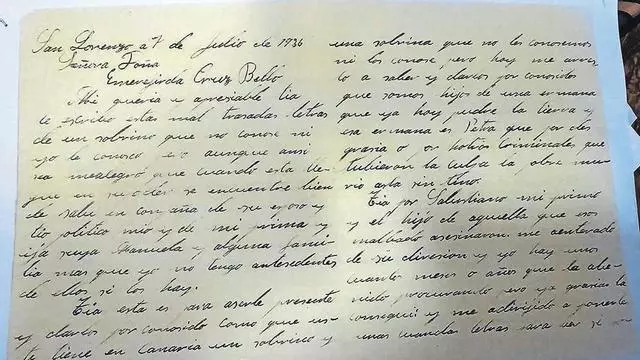 San Lorenzo a 7 de Julio de 1936
Señora Toña
Emerejirda Cruz Bello
Mi queria y apresiable tia
le escribo estas mal trasadas letras
de un sobrino que no conose ni
yo le conosco, ero aunque ansi
sea mealegro que cuando esta lle
gue en su oder se encuentre bien
de salu en con aña de su es oso y
tio politico mio y de mi prima y
ija suya Manuela y alguna fami
lia mas que yo no tengo antesedentes
de ellos si los hay.
Tia esta es para aserle presente
y darlos por conosido como que us-
te tiene en Canaria un sobrino y
una sobrina que no les conosemos
ni los conose pero hoy me atrev
lo a saber y darlos por conosidos
que somos hijos de una ermana
que ya hoy pudre la tierra y
esa ermana es Petra que por des
grasia o or hotros criminales que
tubieron la culpa la obre mu
rio asta sin tino.
Tia por Salustiano mi primo
y el hijo de aquella que esos
malbados asesinaron me aenterado
de su diresion y yo hay unos
cuanto meses o años que la abe
nido procurando pero ya grasias la
consegui y me adirijido a ponerle
unas cuantas letras para ber si